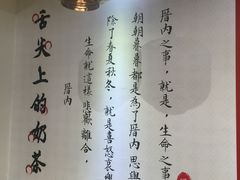 厝内之事，就是，生命之事
朝朝暮暮都是為了厝内 思與
除了春夏秋冬，就是喜怒哀樂
生命就這樣 悲歡離合，
厝内
舌尖上的奶茶